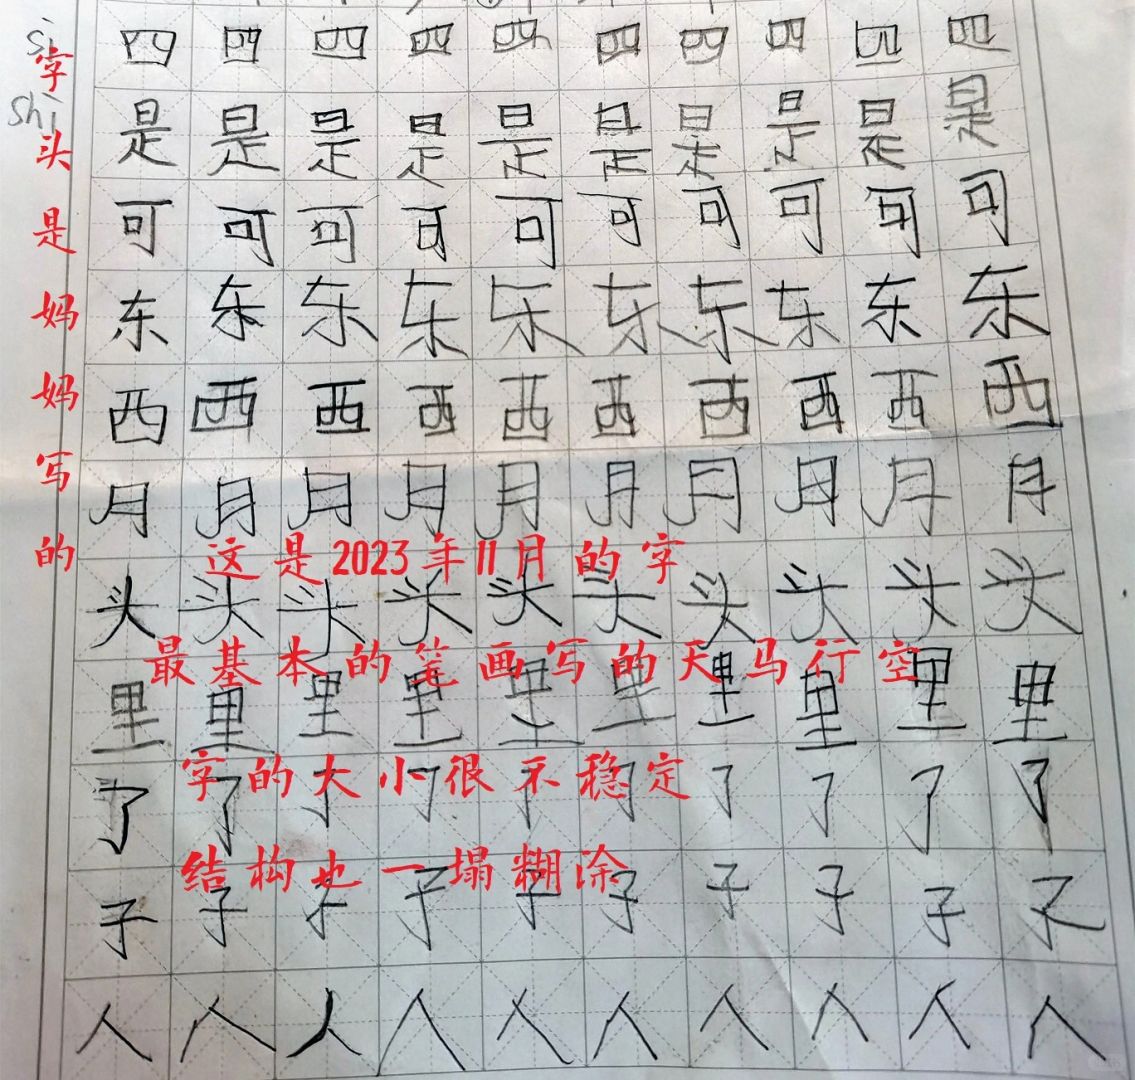 si
四 四 四 四 四 四 四 四 四 四
shi
是 是 是 是 是 是 是 是 是 是
可 可 可 可 可 可 可 可 可 可
东 东 东 东 东 东 东 东 东 东
西 西 西 西 西 西 西 西 西 西
月 月 月 月 月 月 月 月 月 月
头 头 头 头 头 头 头 头 头 头
里 里 里 里 里 里 里 里 里 里
了 了 了 了 了 了 了 了 了 了
子 子 子 子 子 子 子 子 子 子
人 人 人 人 人 人 人 人 人 人
字头是妈妈写的
这是2023年11月的字
最基本的笔画写的天马行空
字的大小很不稳定
结构也一塌糊涂